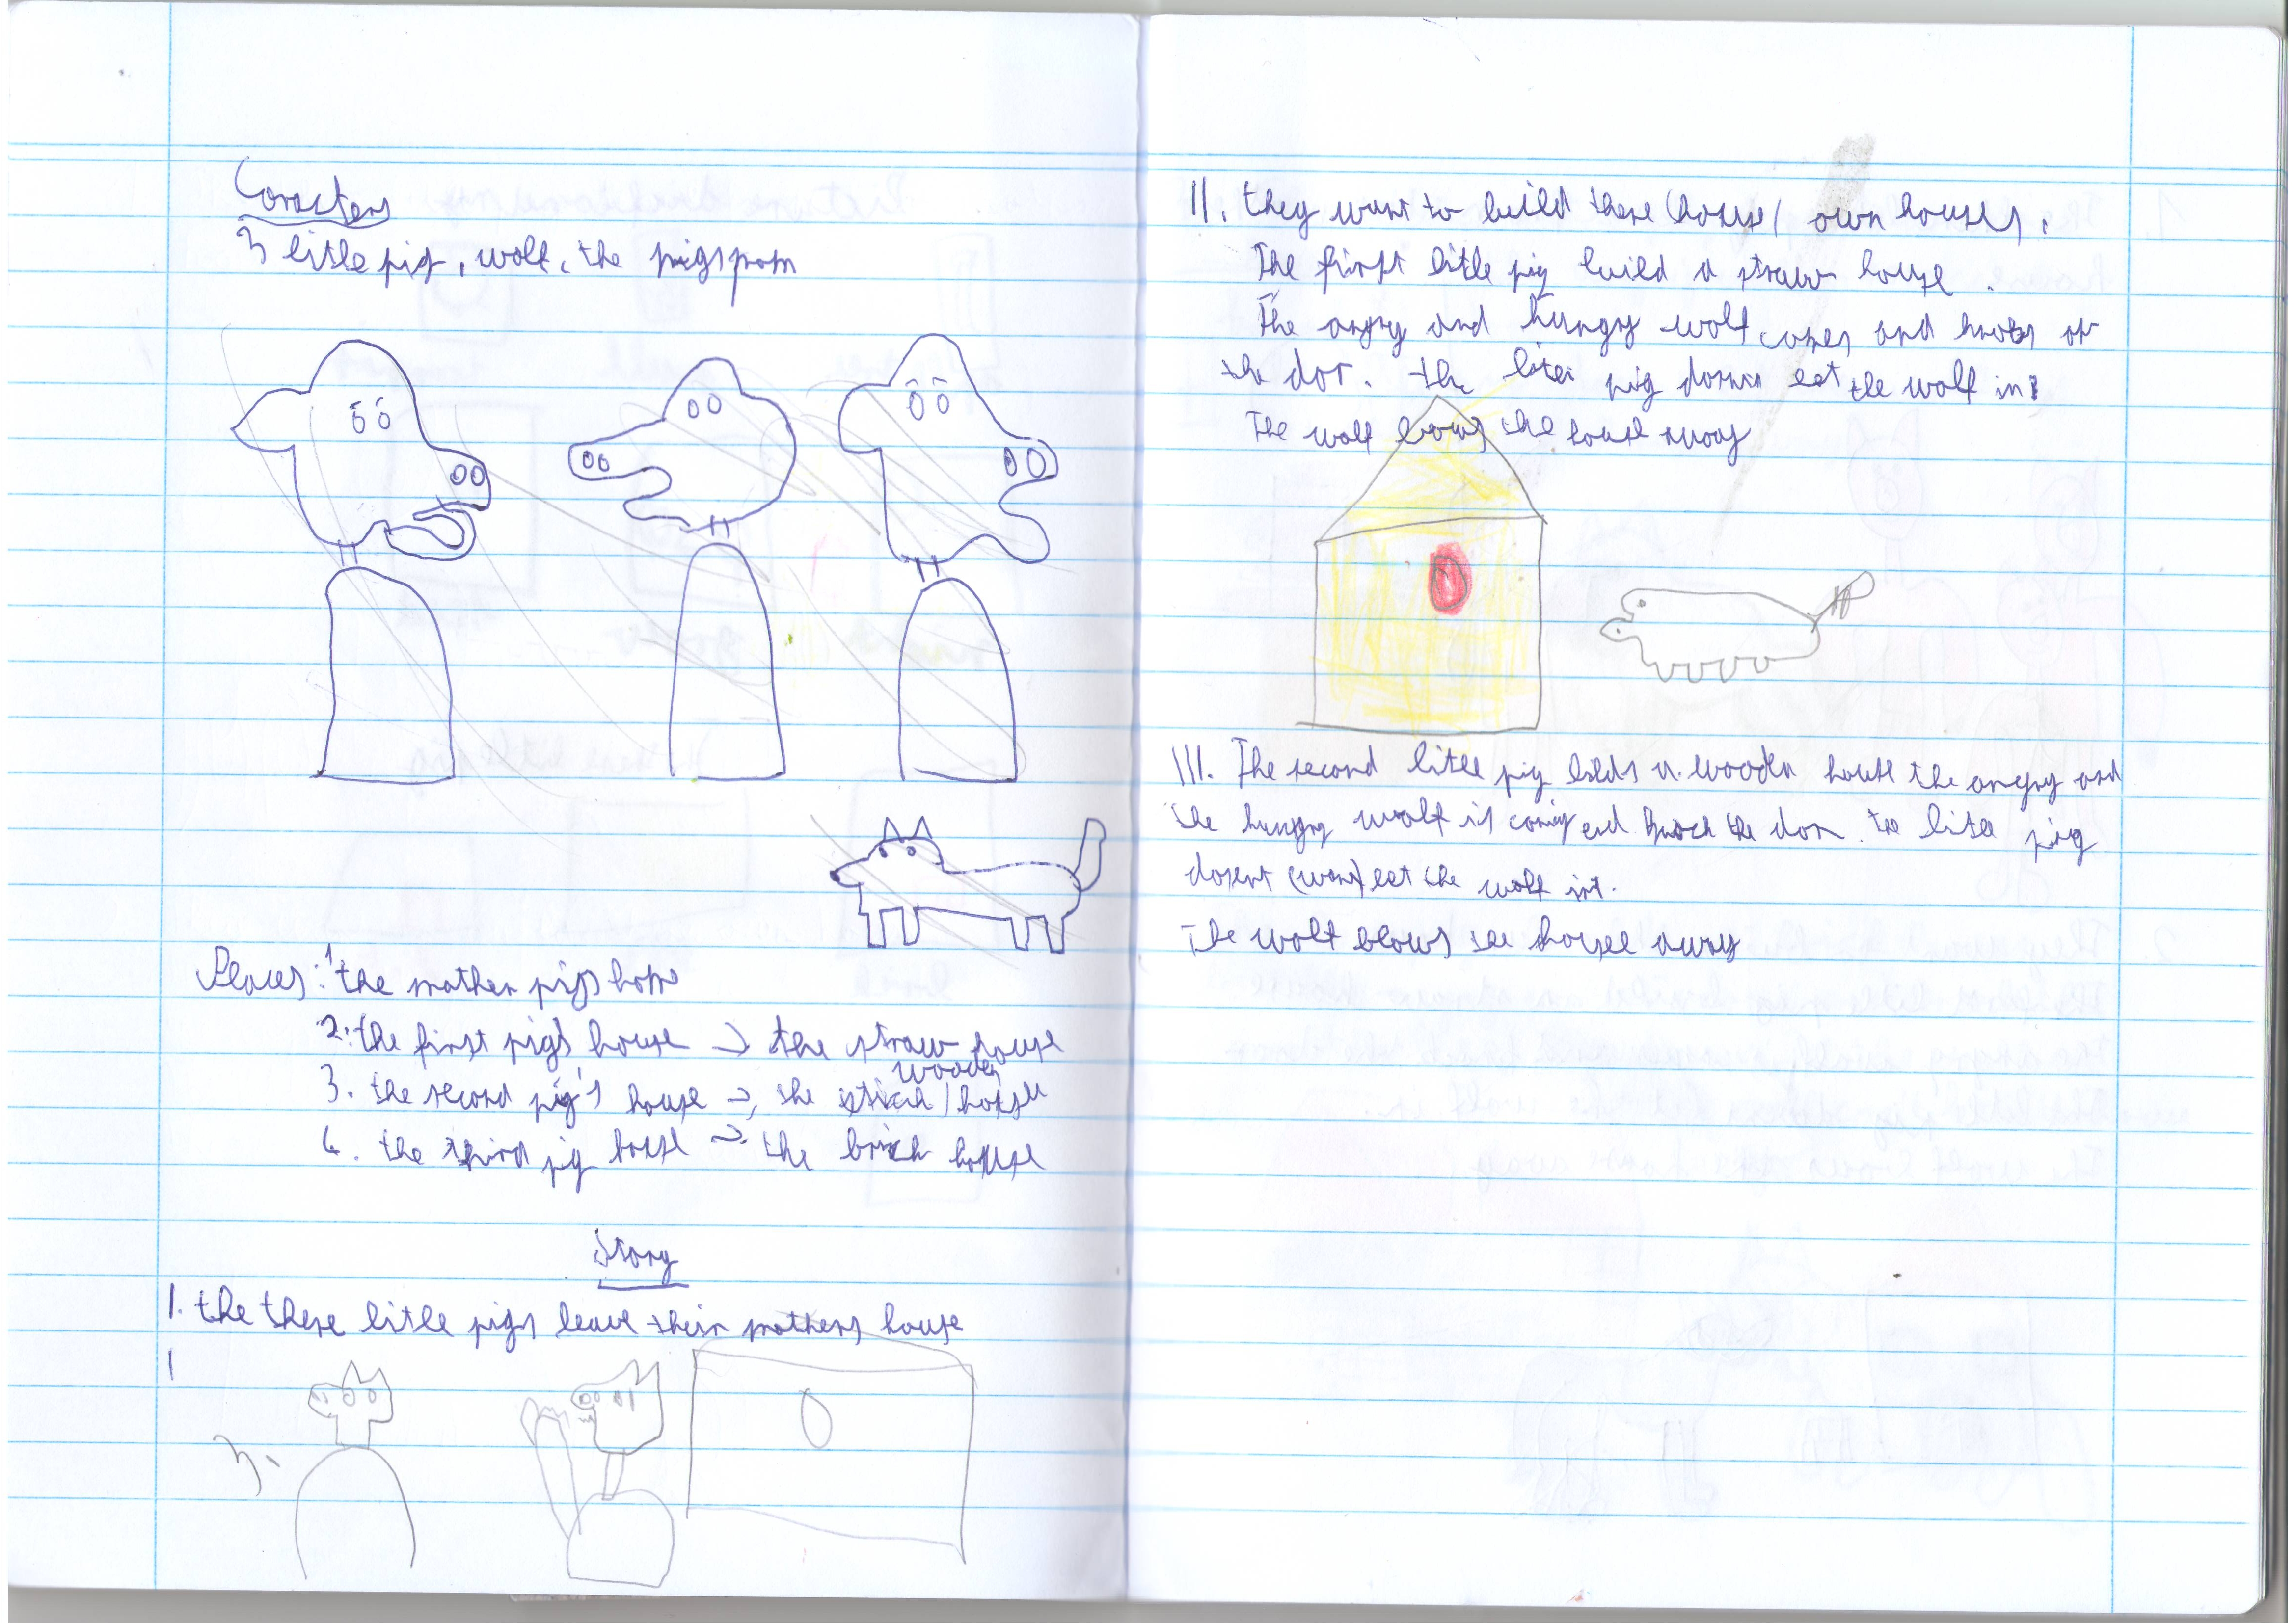 Coracters
3 little pig, wolf, the pigs mom
Places: 1 the mother pigs home
2. the first pigs' house → the straw house
wooden
3. the second pig's house → the stick / house
4. the third pig house → the brick house
Story
1. the there little pigs leave their mothers house
3.
II. they want to build there (house) own houses.
The first little pig build a straw house.
The angry and hungry wolf comes and knobs at
the dor. the litei pig dosnn let the wolf in.
The wolf blows the house away
III. The second little pig bilds a wooden house the angry and
the hungry wolf is coming end knock the dor. the litle pig
dosent (want) let the wolf in.
The wolf blows the house away